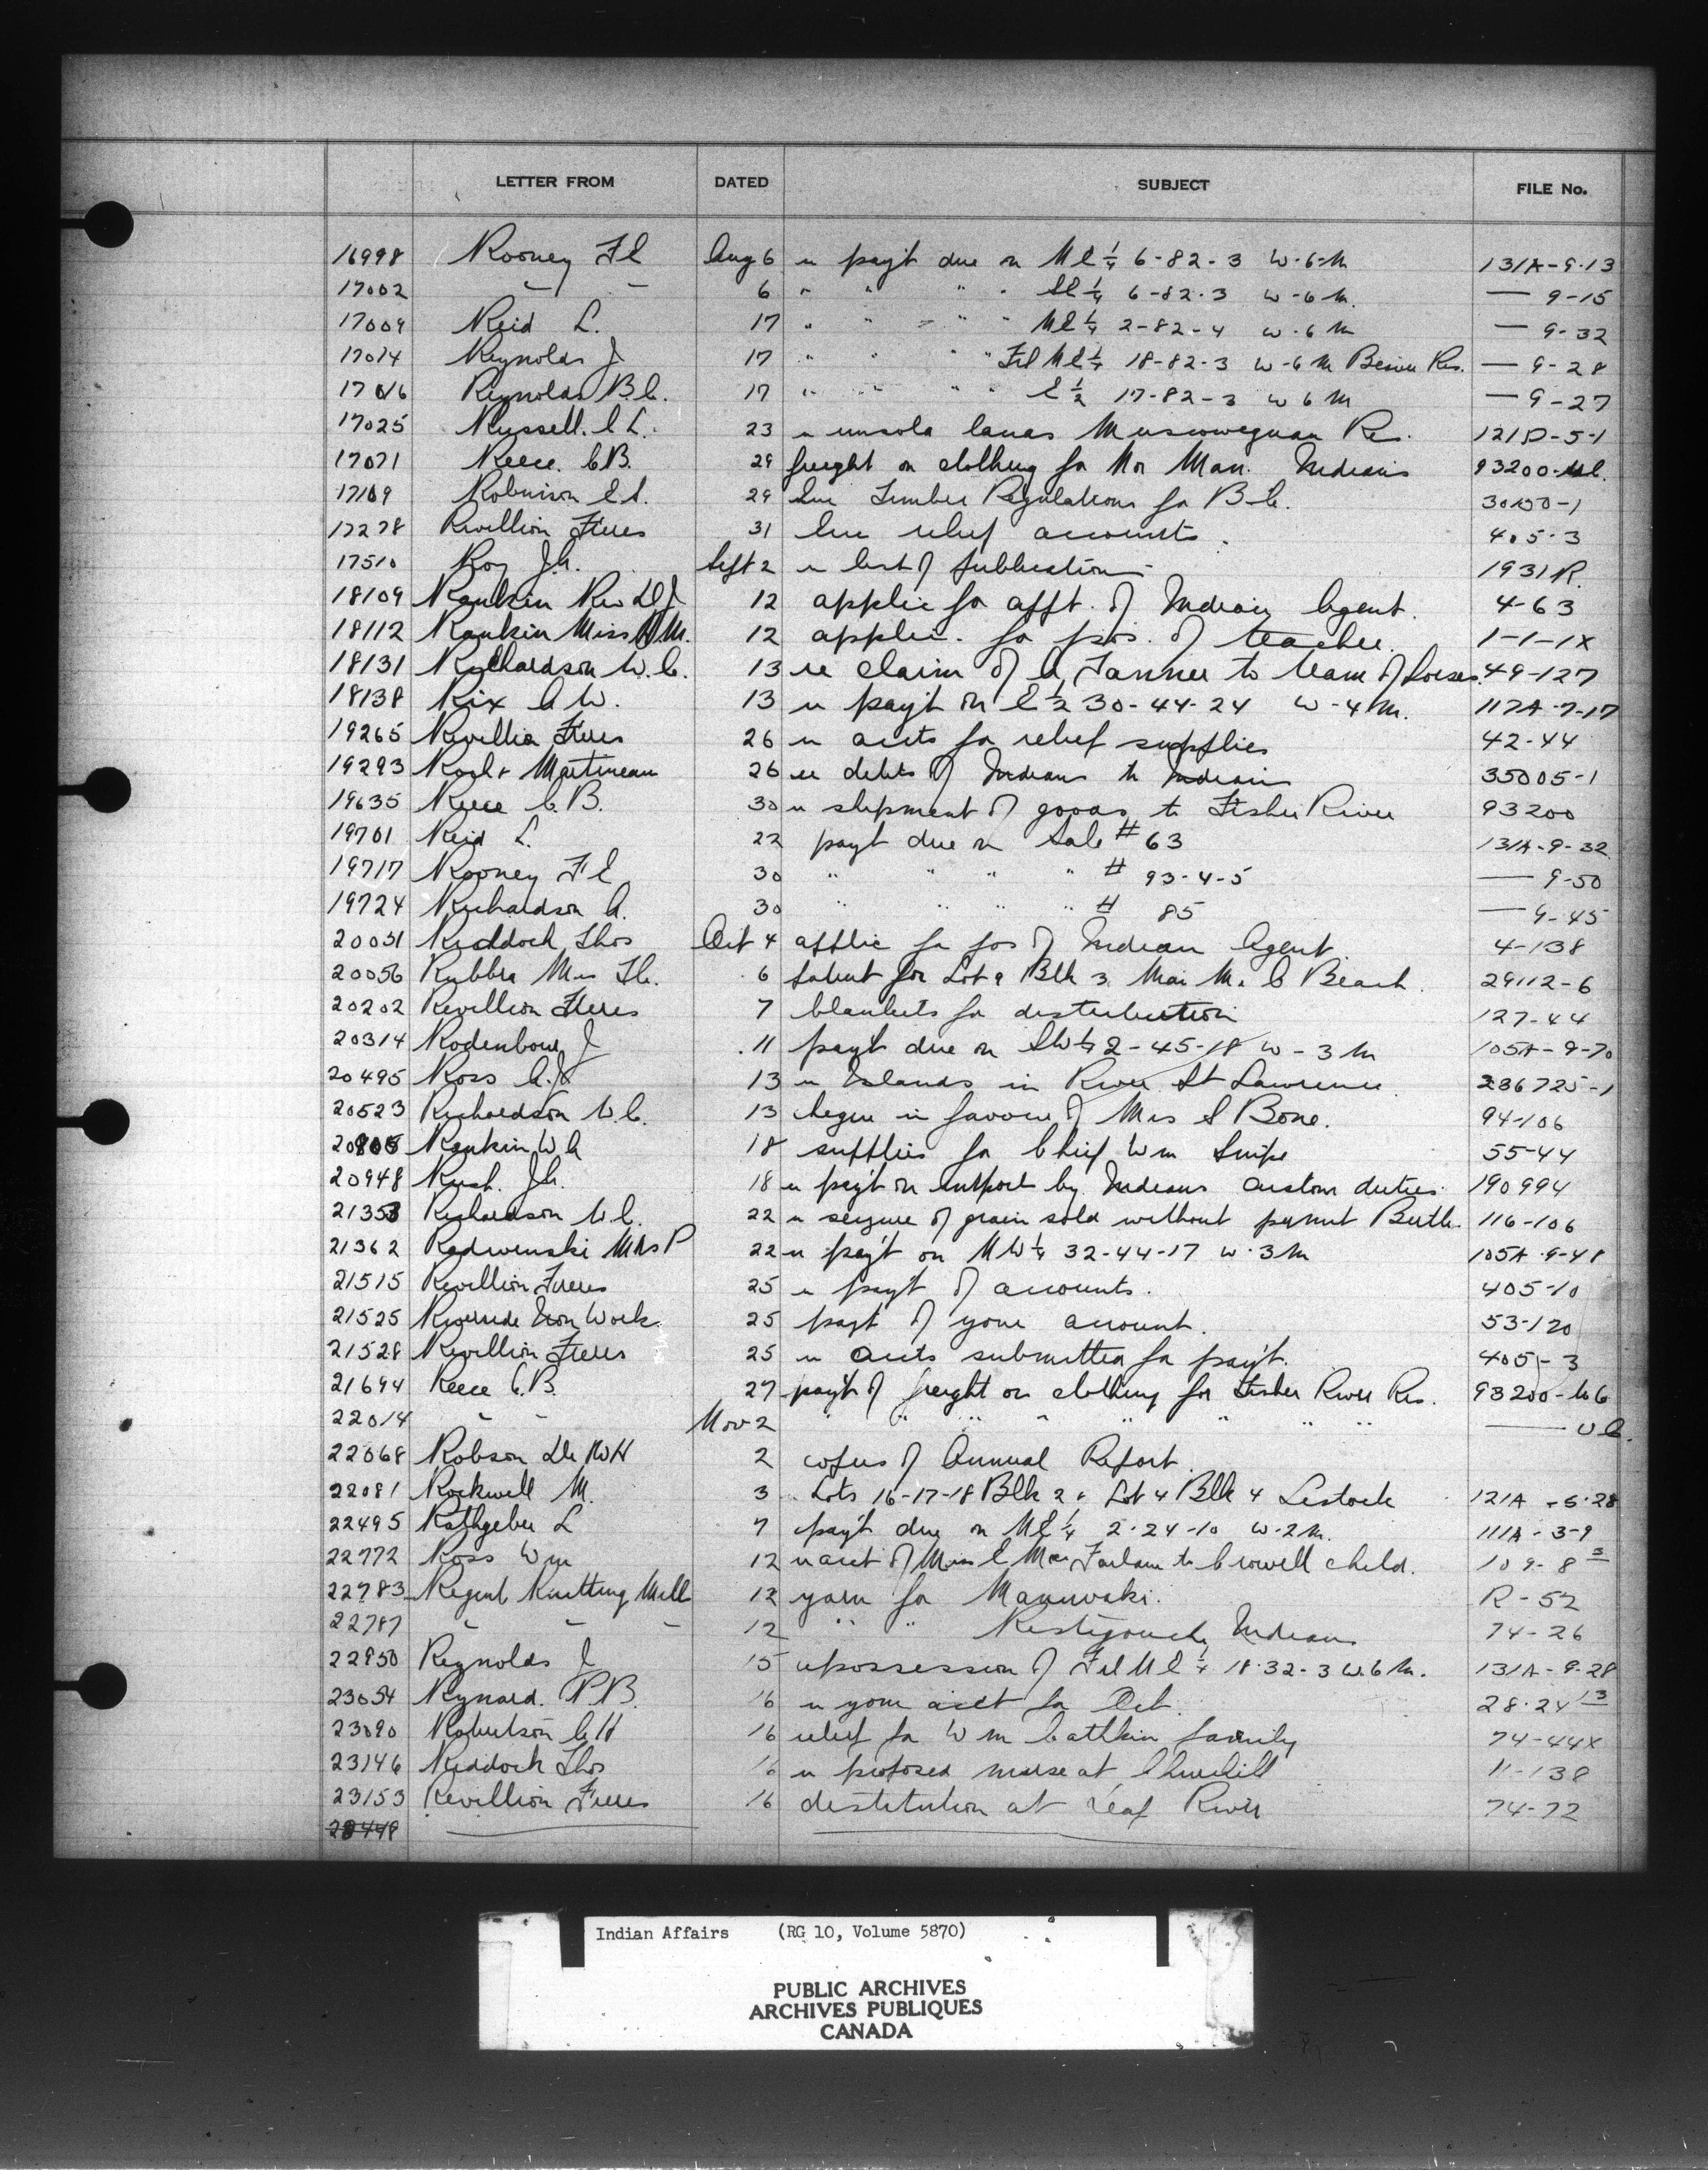 LETTER FROM DATED SUBJECT FILE No.
16998 Rooney F E Aug 6 re payt due on NE 1/4 6-82-3 W-6-M 131A-9-13
17002 " " 6 " " " " SE 1/4 6-82-3 W-6 M. — 9-15
17009 Reid L. 17 " " " " NE 1/4 2-82-4 W-6 M — 9-32
17014 Reynolds J 17 " " " " Frl NE 1/4 18-82-3 W-6 M Beaver Res. — 9-28
17016 Reynolds B.C. 17 " " " " E 1/2 17-82-3 W 6 M — 9-27
17025 Russell. E L. 23 re unsold lands Muscowequan Res. 121D-5-1
17071 Reece. C B. 29 freight on clothing for Nor Man. Indians 93200-
17109 Robinson E S. 29 Timber Regulations for B.C. 30150-1
17278 Revillion Freres 31 relief accounts. 405-3
17510 Roy J.A. Sept 2 re list of publications 1931 R.
18109 Rankin Rev D J 12 applic for appt. of Indian Agent. 4-63
18112 Rankin Miss A M. 12 applic. for pos. of teacher. 1-1-1X
18131 Richardson W. C. 13 re claim of A Tanner to team of horses. 49-127
18138 Rix A W. 13 re payt on E 1/2 30-44-24 W-4 M. 117A-7-17
19265 Revillion Freres 26 re accts for relief supplies 42-44
19293 & Martineau 26 re debts of Indians to Indians 35005-1
19635 Reece C. B. 30 re shipment of goods to Fisher River 93200
19701 Reid L. 22 payt due on Sale # 63 131A-9-32
19717 Rooney F E 30 " " " " # 93-4-5 — 9-50
19724 Richardson A. 30 " " " " # 85 — 9-45
20051 Riddoch Thos Oct 4 applic for pos of Indian Agent. 4-138
20056 Rubbra Mrs 6 patent for Lot 9 Blk 3 Beach. 29112-6
20202 Revillion Freres 7 blankets for distribution 127-44
20314 Rodenbour J 11 payt due on SW 1/4 2-45-18 W-3 M 105A-9-70
20495 Ross A. J. 13 re Islands in River St Lawrence 286725-1
20523 Richardson W. C. 13 cheque in favour of Mrs S Bone. 94-106
20805 Rankin W A 18 supplies for Chief Wm Snipe 55-44
20948 Rush. J.A. 18 re payt on import by Indians custom duties 190994
21353 Richardson W. C. 22 re seizure of grain sold without permit Birtle 116-106
21362 Radwenski Mrs P 22 re payt on NW 1/4 32-44-17 W-3 M 105A-9-48
21515 Revillion Freres 25 re payt of accounts. 405-10
21525 Riverside Iron Works 25 payt of your account. 53-120
21528 Revillion Freres 25 re accts submitted for payt. 405-3
21694 Reece C. B. 27 payt of freight on clothing for Fisher River Res. 93200-
22014 " " Nov 2 " " " " " " " " —
22068 Robson Dr W H 2 copies of Annual Report.
22081 Rockwell M. 3 Lots 16-17-18 Blk 2 & Lot 4 Blk 4 Lestock 121A-5-28
22495 Rathgeber L 7 payt due on NE 1/4 2-24-10 W-2 M. 111A-3-9
22772 Ross Wm 12 re acct of Miss E MacFarlane to Crowell child. 109-8 3
22783 Regent Knitting Mill 12 yarn for Maniwaki. R-52
22787 " " " 12 " " Restigouche Indians 74-26
22850 Reynolds J 15 repossession of Frl NE 1/4 18-32-3 W.6 M. 131A-9-28
23054 Rynard. P B. 16 re your acct for Oct. 28-24 13
23090 Robertson C H 16 relief for Wm Cathkin family 74-44X
23146 Riddoch Thos 16 re proposed nurse at Churchill 11-138
23153 Revillion Freres 16 destitution at Leaf River 74-72
Indian Affairs (RG 10, Volume 5870)
PUBLIC ARCHIVES
ARCHIVES PUBLIQUES
CANADA